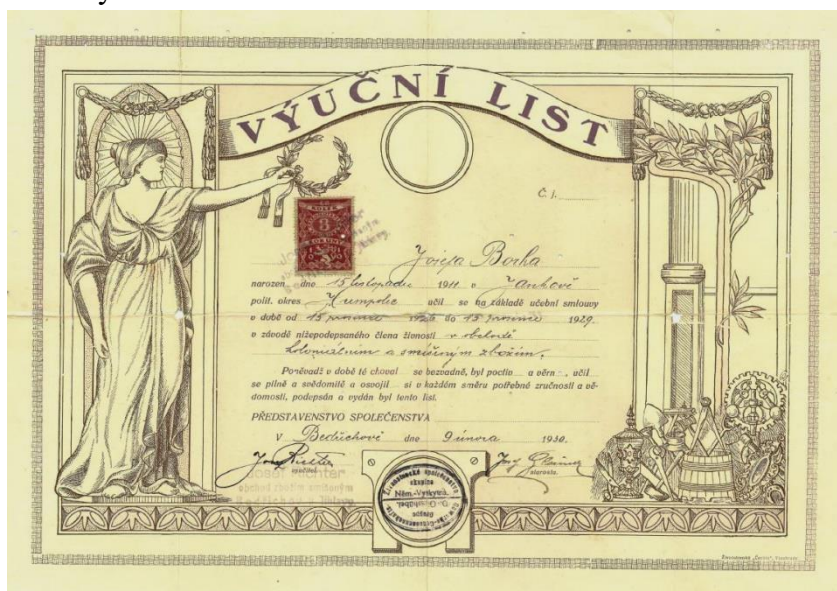 VÝUČNÍ LIST
Č. j.
KOLEK
3
KORUNY
Josefa Borka
narozen dne 15 listopadu 1911 v Jankově
polit. okres Humpolec učil se na základě učební smlouvy
v době od 15 prosince 1926 do 15 prosince 1929
v závodě nížepodepsaného člena živnosti v obchodě
koloniálním a smíšeným zbožím.
Poněvadž v době té choval se bezvadně, byl poctiv a věrn, učil
se pilně a svědomitě a osvojil si v každém směru potřebné zručnosti a vě-
domosti, podepsán a vydán byl tento list.
PŘEDSTAVENSTVO SPOLEČENSTVA
V Bedřichově dne 9 února 1930.
starosta.